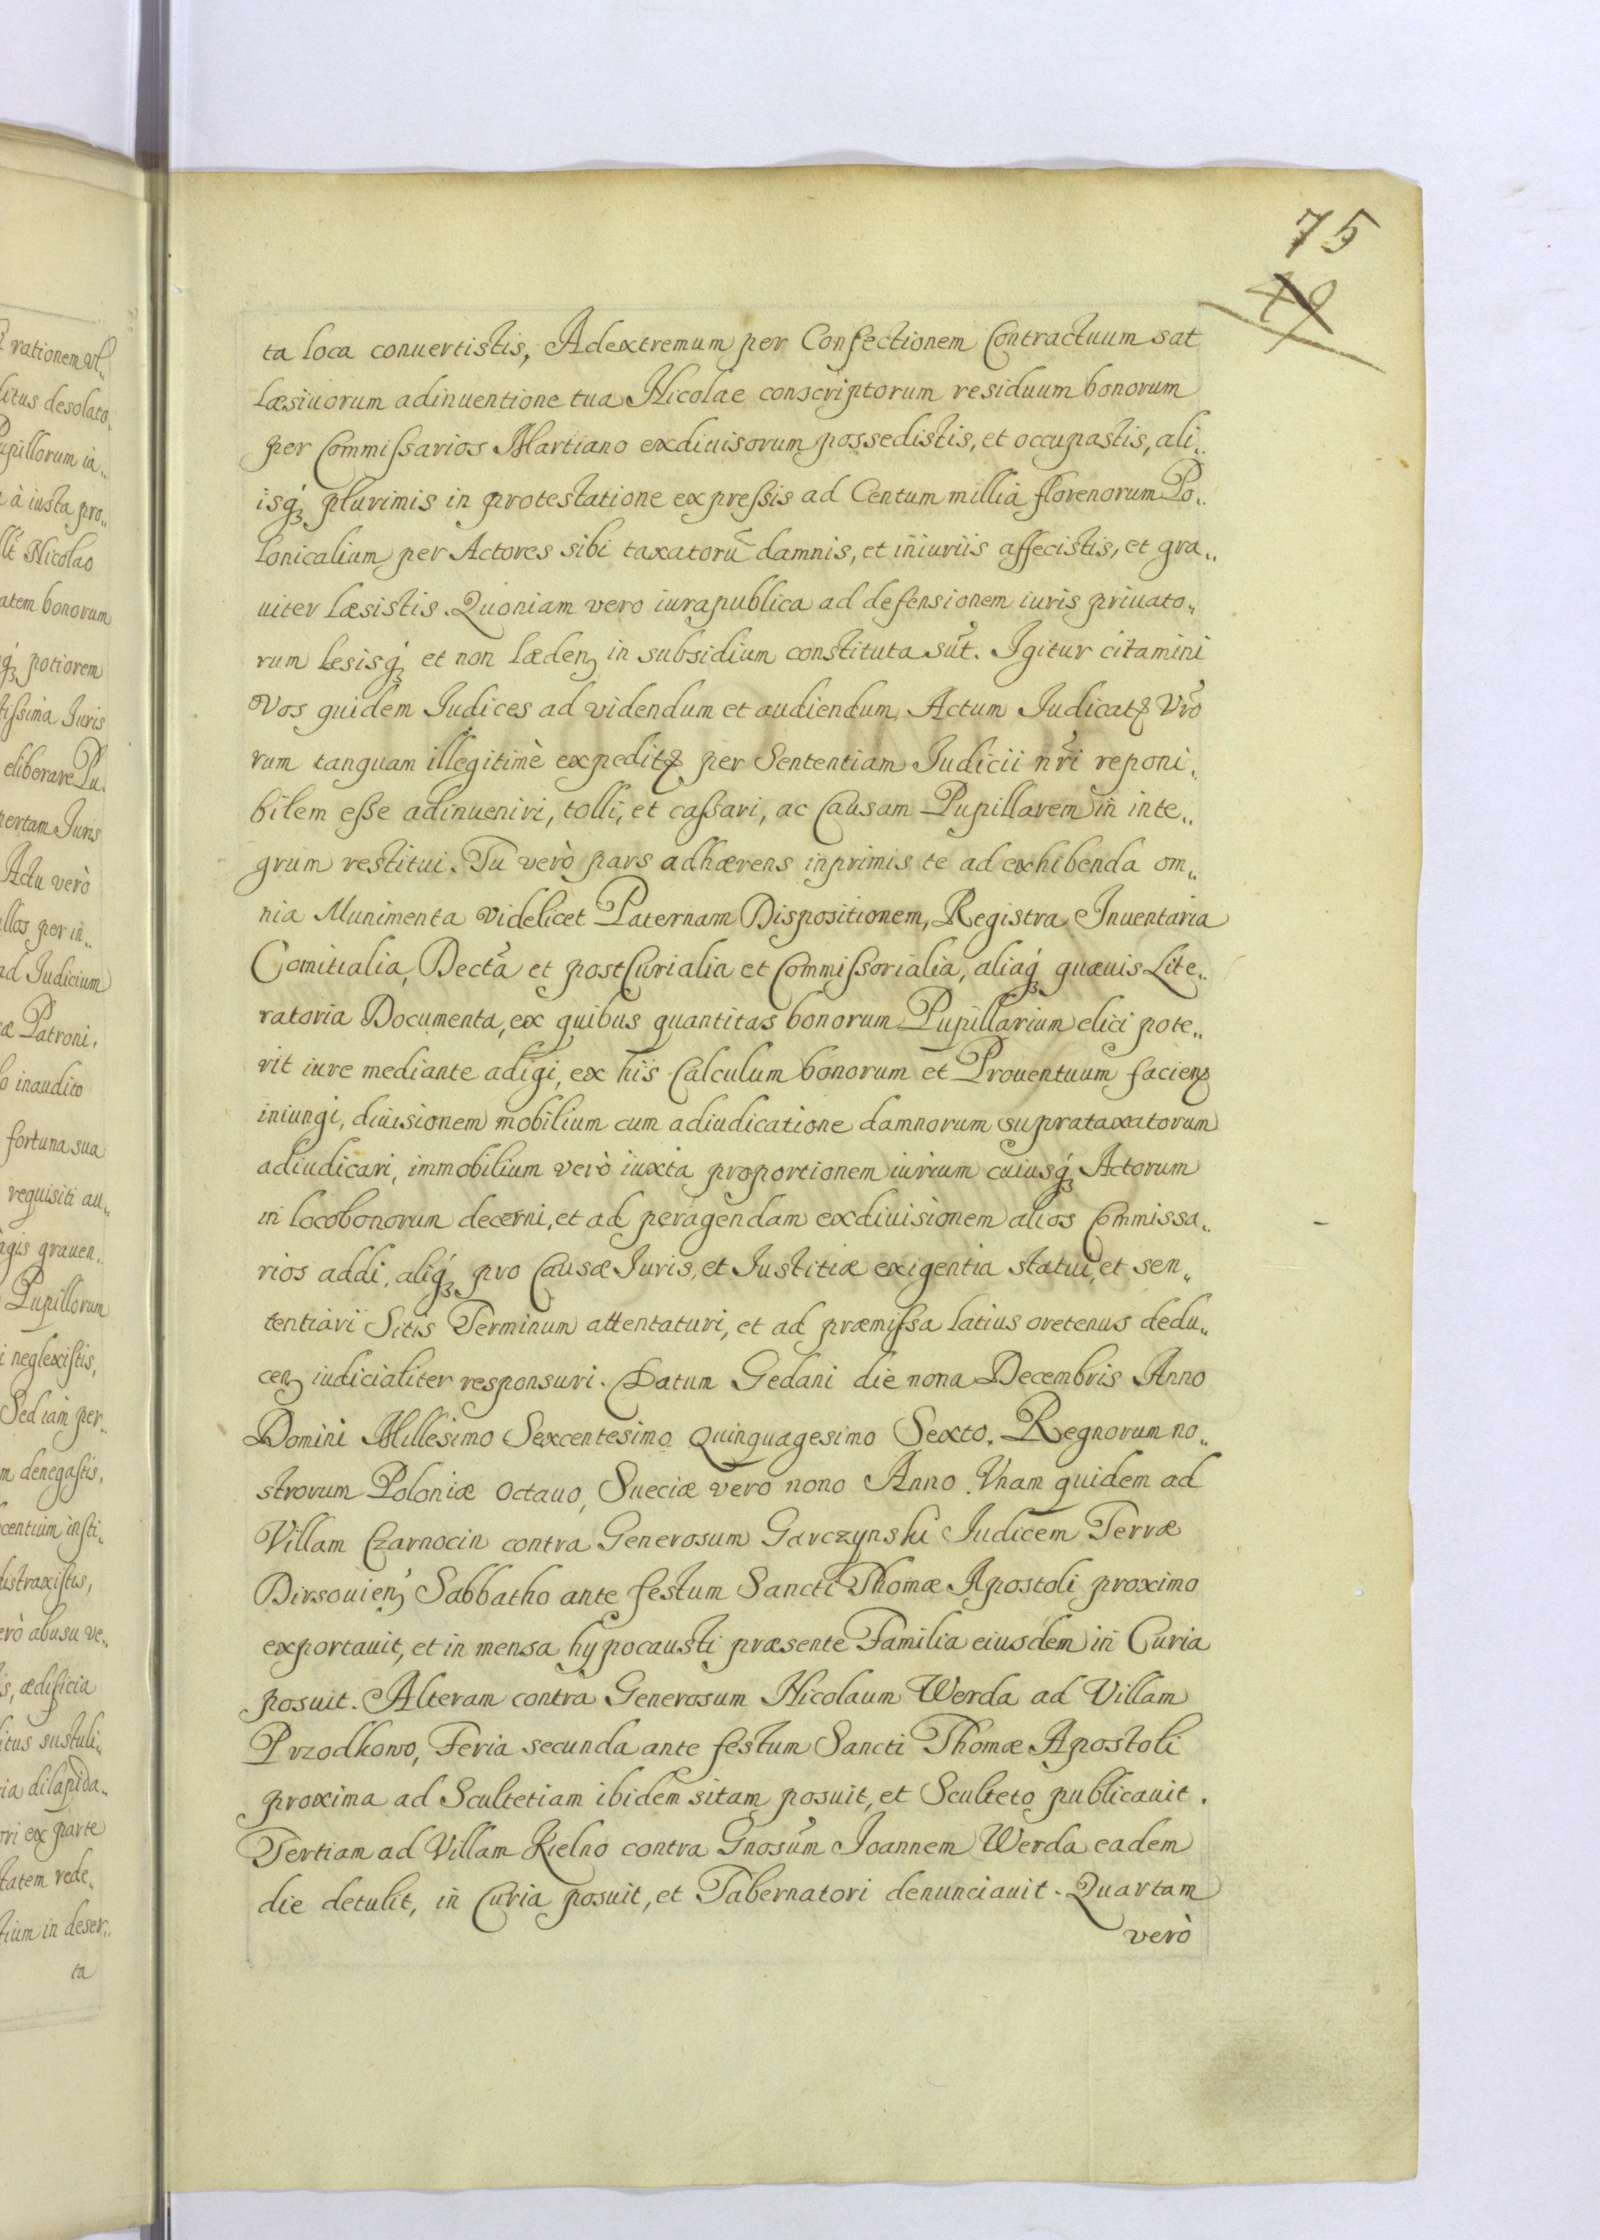 75
49
ta loca conuertistis, Adextremum per Confectionem Contractuum sat
Læsiuorum adinuentione tua Nicolae conscriptorum residuum bonorum
per Commißarios Martiano exdiuisorum possedistis, et occupastis, ali„
isq́ꝫ plurimis in protestatione expreßis ad Centum millia florenorum Po„
lonicalium per Actores sibi taxatorũ damnis, et iniuriis affecistis, et gra„
uiter Læsistis. Quoniam vero iura publica ad defensionem iuris priuato„
rum Lesisq́ꝫ et non Lædenꝫ in subsidium constituta sũt. Igitur citamini
Vos quidem Iudices ad videndum et audiendum, Actum Iudicatꝫ Vr̃o
rum tanquam illegitimè expeditꝫ per Sententiam Iudicii nr̃i reponi„
bilem eße adinueniri, tolli, et caßari, ac Causam Pupillarem in inte„
grum restitui. Tu verò pars adhærens inprimis te ad exhibenda om„
nia Munimenta videlicet Paternam Dispositionem, Registra, Inuentaria
Comitialia, Dect̃a et postCurialia et Commißorialia, aliaq́ꝫ quæuis Lite„
ratoria Documenta, ex quibus quantitas bonorum Pupillarium elici pote„
rit iure mediante adigi, ex his Calculum bonorum et Prouentuum facienꝫ
iniungi, diuisionem mobilium cum adiudicatione damnorum suprataxatorum
adiudicari, immobilium verò iuxta proportionem iurium cuiusq́ꝫ Actorum
in loco bonorum decerni, et ad peragendam exdiuisionem alios Commissa„
rios addi, aliq́ꝫ pro Causæ Iuris, et Iustitiæ exigentia statui, et sen„
tentiari Sitis Terminum attentaturi, et ad præmißa latius oretenus dedu„
cenꝫ iudicialiter responsuri. Datum Gedani die nona Decembris Anno
Domini Millesimo Sexcentesimo Quinquagesimo Sexto. Regnorum no„
strorum Poloniæ Octauo, Sueciæ vero nono Anno. Vnam quidem ad
Villam Czarnocin contra Generosum Garczynski Iudicem Terræ
Dirsouienꝫ Sabbatho ante festum Sancti Thomæ Apostoli proximo
exportauit, et in mensa hypocausti præsente Familia eiusdem in Curia
posuit. Alteram contra Generosum Nicolaum Werda ad Villam
Przodkowo, Feria secunda ante festum Sancti Thomæ Apostoli
proxima ad Scultetiam ibidem sitam posuit, et Sculteto publicauit.
Tertiam ad Villam Kielno contra Gnosũm Ioannem Werda eadem
die detulit, in Curia posuit, et Tabernatori denunciauit. Quartam
verò